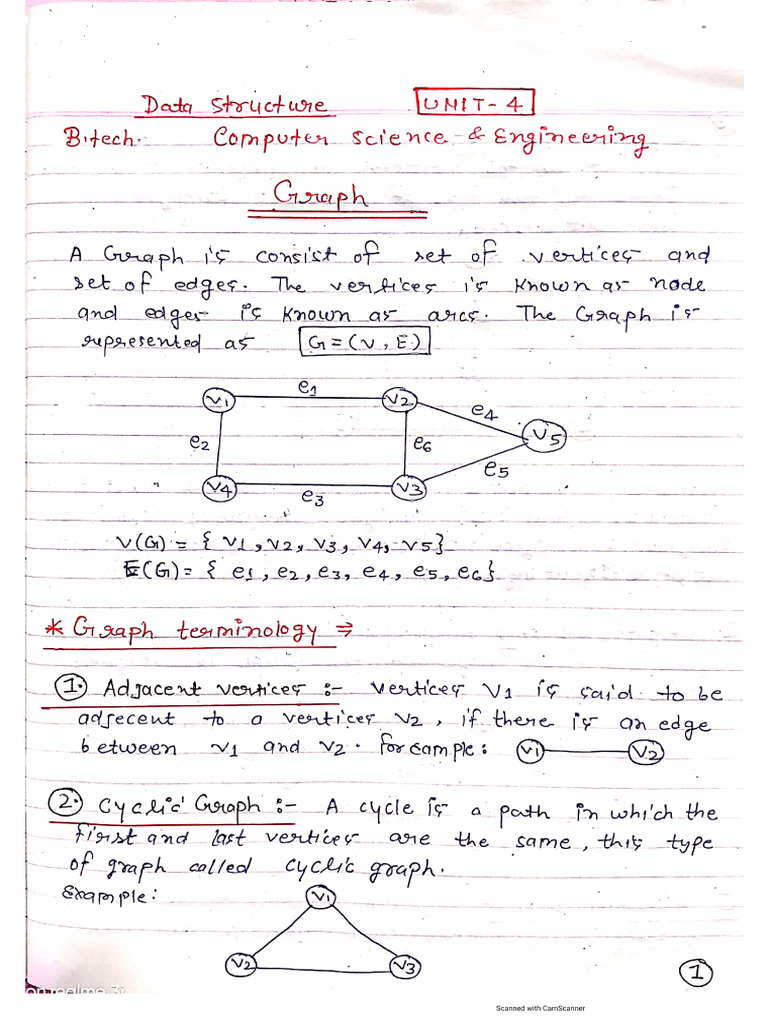 Data Structure UNIT-4
B.tech. Computer Science & Engineering
Graph
A Graph is consist of set of vertices and
set of edges. The vertices is known as node
and edges is known as arcs. The Graph is
represented as G = (V, E)
e1
v1 v2
e4
e2 e6 v5
e5
v4 v3
e3
V(G) = { v1, v2, v3, v4, v5}
E(G) = { e1, e2, e3, e4, e5, e6}
* Graph terminology ⇒
1. Adjacent vertices :- vertices v1 is said to be
adjecent to a vertices v2, if there is an edge
between v1 and v2. for example: v1 v2
2. Cyclic Graph :- A cycle is a path in which the
first and last vertices are the same, this type
of graph called cyclic graph.
Example:
v1
v2 v3
1
Scanned with CamScanner